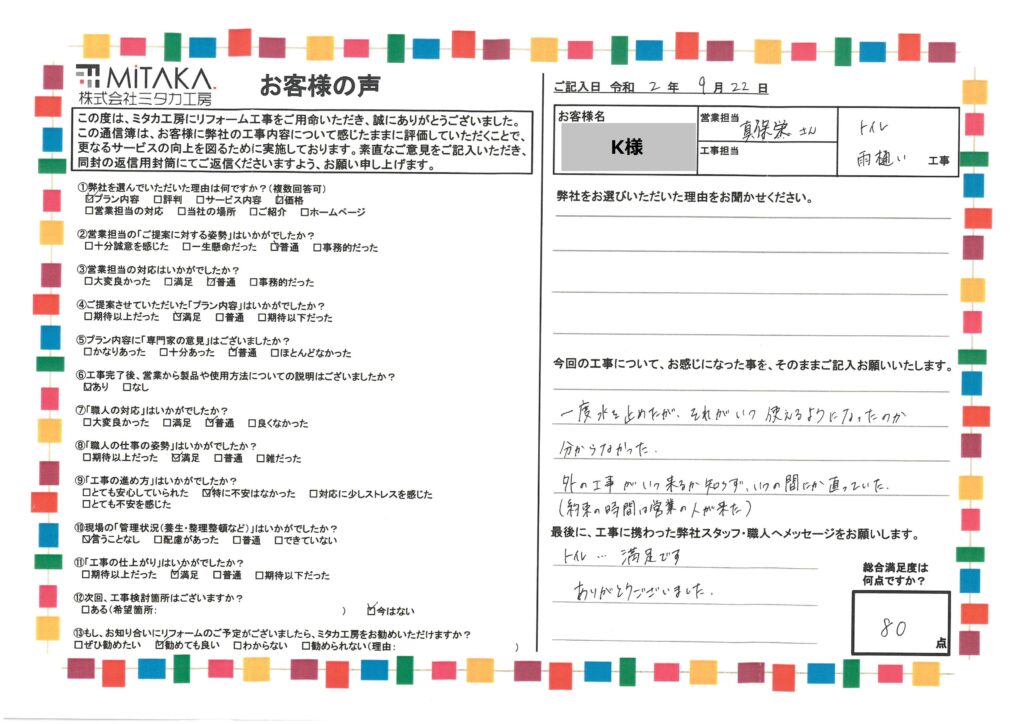 MiTAKA.
株式会社ミタカ工房
お客様の声
この度は、ミタカ工房にリフォーム工事をご用命いただき、誠にありがとうございました。
この通信簿は、お客様に弊社の工事内容について感じたままに評価していただくことで、
更なるサービスの向上を図るために実施しております。素直なご意見をご記入いただき、
同封の返信用封筒にてご返信くださいますよう、お願い申し上げます。
①弊社を選んでいただいた理由は何ですか？(複数回答可)
☑プラン内容 □評判 □サービス内容 ☑価格
□営業担当の対応 □当社の場所 □ご紹介 □ホームページ
②営業担当の「ご提案に対する姿勢」はいかがでしたか？
□十分誠意を感じた □一生懸命だった ☑普通 □事務的だった
③営業担当の対応はいかがでしたか？
□大変良かった □満足 ☑普通 □事務的だった
④ご提案させていただいた「プラン内容」はいかがでしたか？
□期待以上だった ☑満足 □普通 □期待以下だった
⑤プラン内容に「専門家の意見」はございましたか？
□かなりあった □十分あった ☑普通 □ほとんどなかった
⑥工事完了後、営業から製品や使用方法についての説明はございましたか？
☑あり □なし
⑦「職人の対応」はいかがでしたか？
□大変良かった □満足 ☑普通 □良くなかった
⑧「職人の仕事の姿勢」はいかがでしたか？
□期待以上だった ☑満足 □普通 □雑だった
⑨「工事の進め方」はいかがでしたか？
□とても安心していられた ☑特に不安はなかった □対応に少しストレスを感じた
□とても不安を感じた
⑩現場の「管理状況(養生・整理整頓など)」はいかがでしたか？
☑言うことなし □配慮があった □普通 □できていない
⑪「工事の仕上がり」はいかがでしたか？
□期待以上だった ☑満足 □普通 □期待以下だった
⑫次回、工事検討箇所はございますか？
□ある(希望箇所: ) ☑今はない
⑬もし、お知り合いにリフォームのご予定がございましたら、ミタカ工房をお勧めいただけますか？
□ぜひ勧めたい ☑勧めても良い □わからない □勧められない(理由: )
ご記入日 令和 2 年 9 月 22 日
お客様名
K様
営業担当 真保栄さん
工事担当
トイレ
雨樋い 工事
弊社をお選びいただいた理由をお聞かせください。
今回の工事について、お感じになった事を、そのままご記入お願いいたします。
一度水を止めたが、それがいつ使えるようになったのか
分からなかった.
外の工事がいつ来るか知らず、いつの間にか直っていた.
(約束の時間は営業の人が来た)
最後に、工事に携わった弊社スタッフ・職人へメッセージをお願いします。
トイレ… 満足です
ありがとうございました.
総合満足度は
何点ですか？
80 点